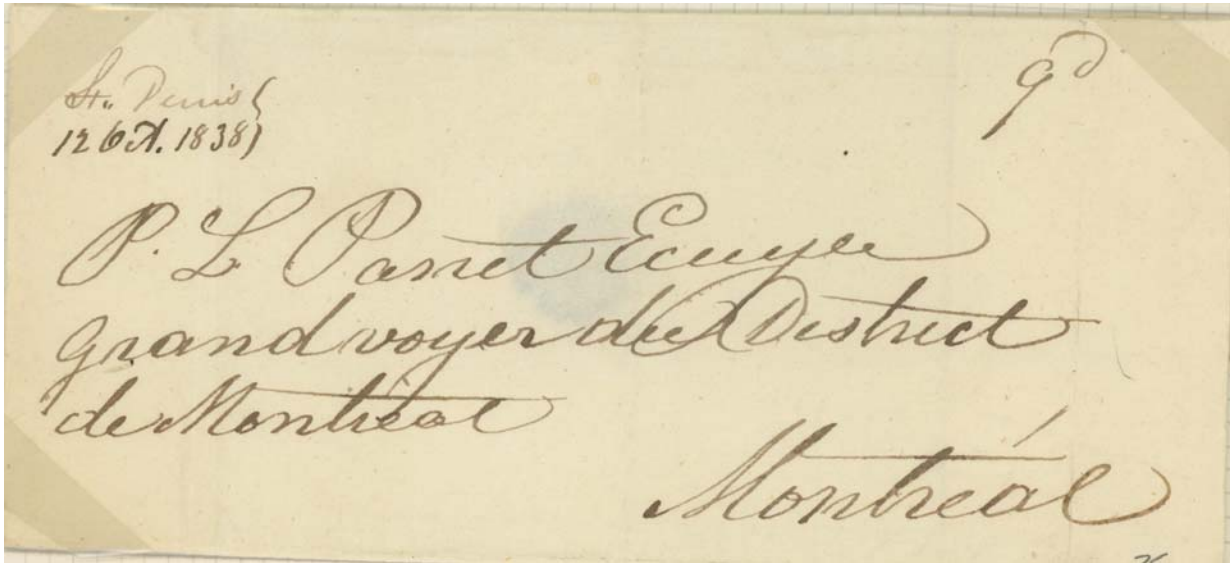 St. Denis
12 Oct. 1838
9d
P. L Panet Ecuyer
grand voyer du District
de Montreal
Montréal